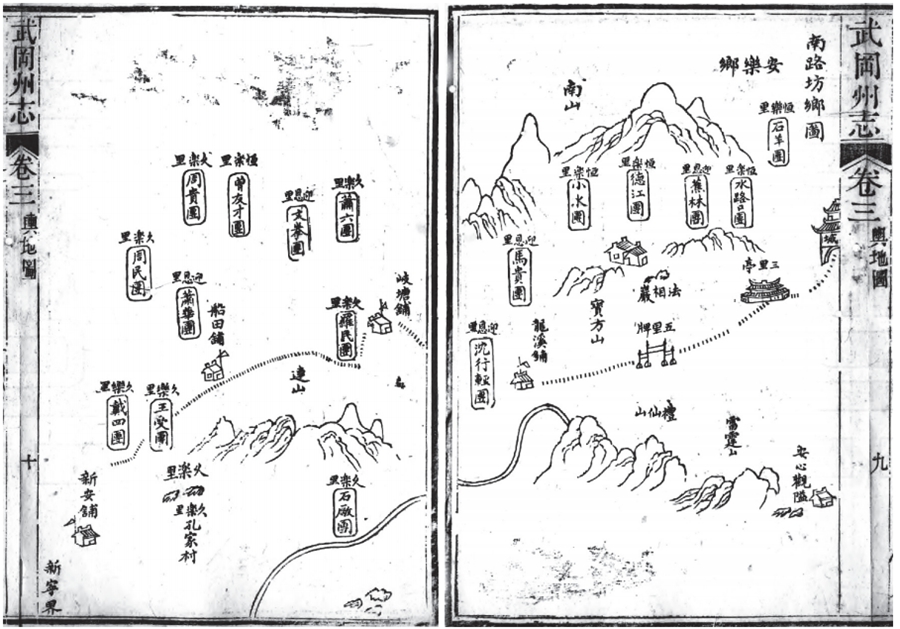 武岡州志
卷三
輿地圖
九
南路坊鄉圖
安樂鄉
恆樂里
石羊圖
南山
恆樂里
水路口圖
迎恩里
蕉林圖
恆樂里
德江圖
恆樂里
小水圖
城
三里亭
法相巖
寶方山
迎恩里
馬貴圖
五里牌
龍溪鋪
迎恩里
沈行輕圖
禮仙山
雷霆山
安心觀隘
武岡州志
卷三
輿地圖
十
久樂里
蕭六圖
迎恩里
文拳圖
恆樂里
曾友才圖
久樂里
周貴圖
久樂里
周民圖
迎恩里
蕭華圖
岐塘鋪
久樂里
羅民圖
船田鋪
連山
久樂里
王受圖
久樂里
戴四圖
久樂里
石版圖
久樂里
久樂里
孔家村
新安鋪
新寧界